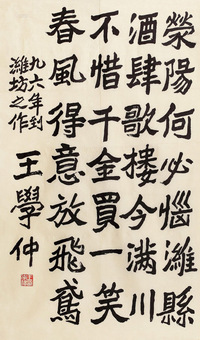 滎陽何必惱濰縣
酒肆歌樓今滿川
不惜千金買一笑
春風得意放飛鳶
九六年到
濰坊之作
王學仲